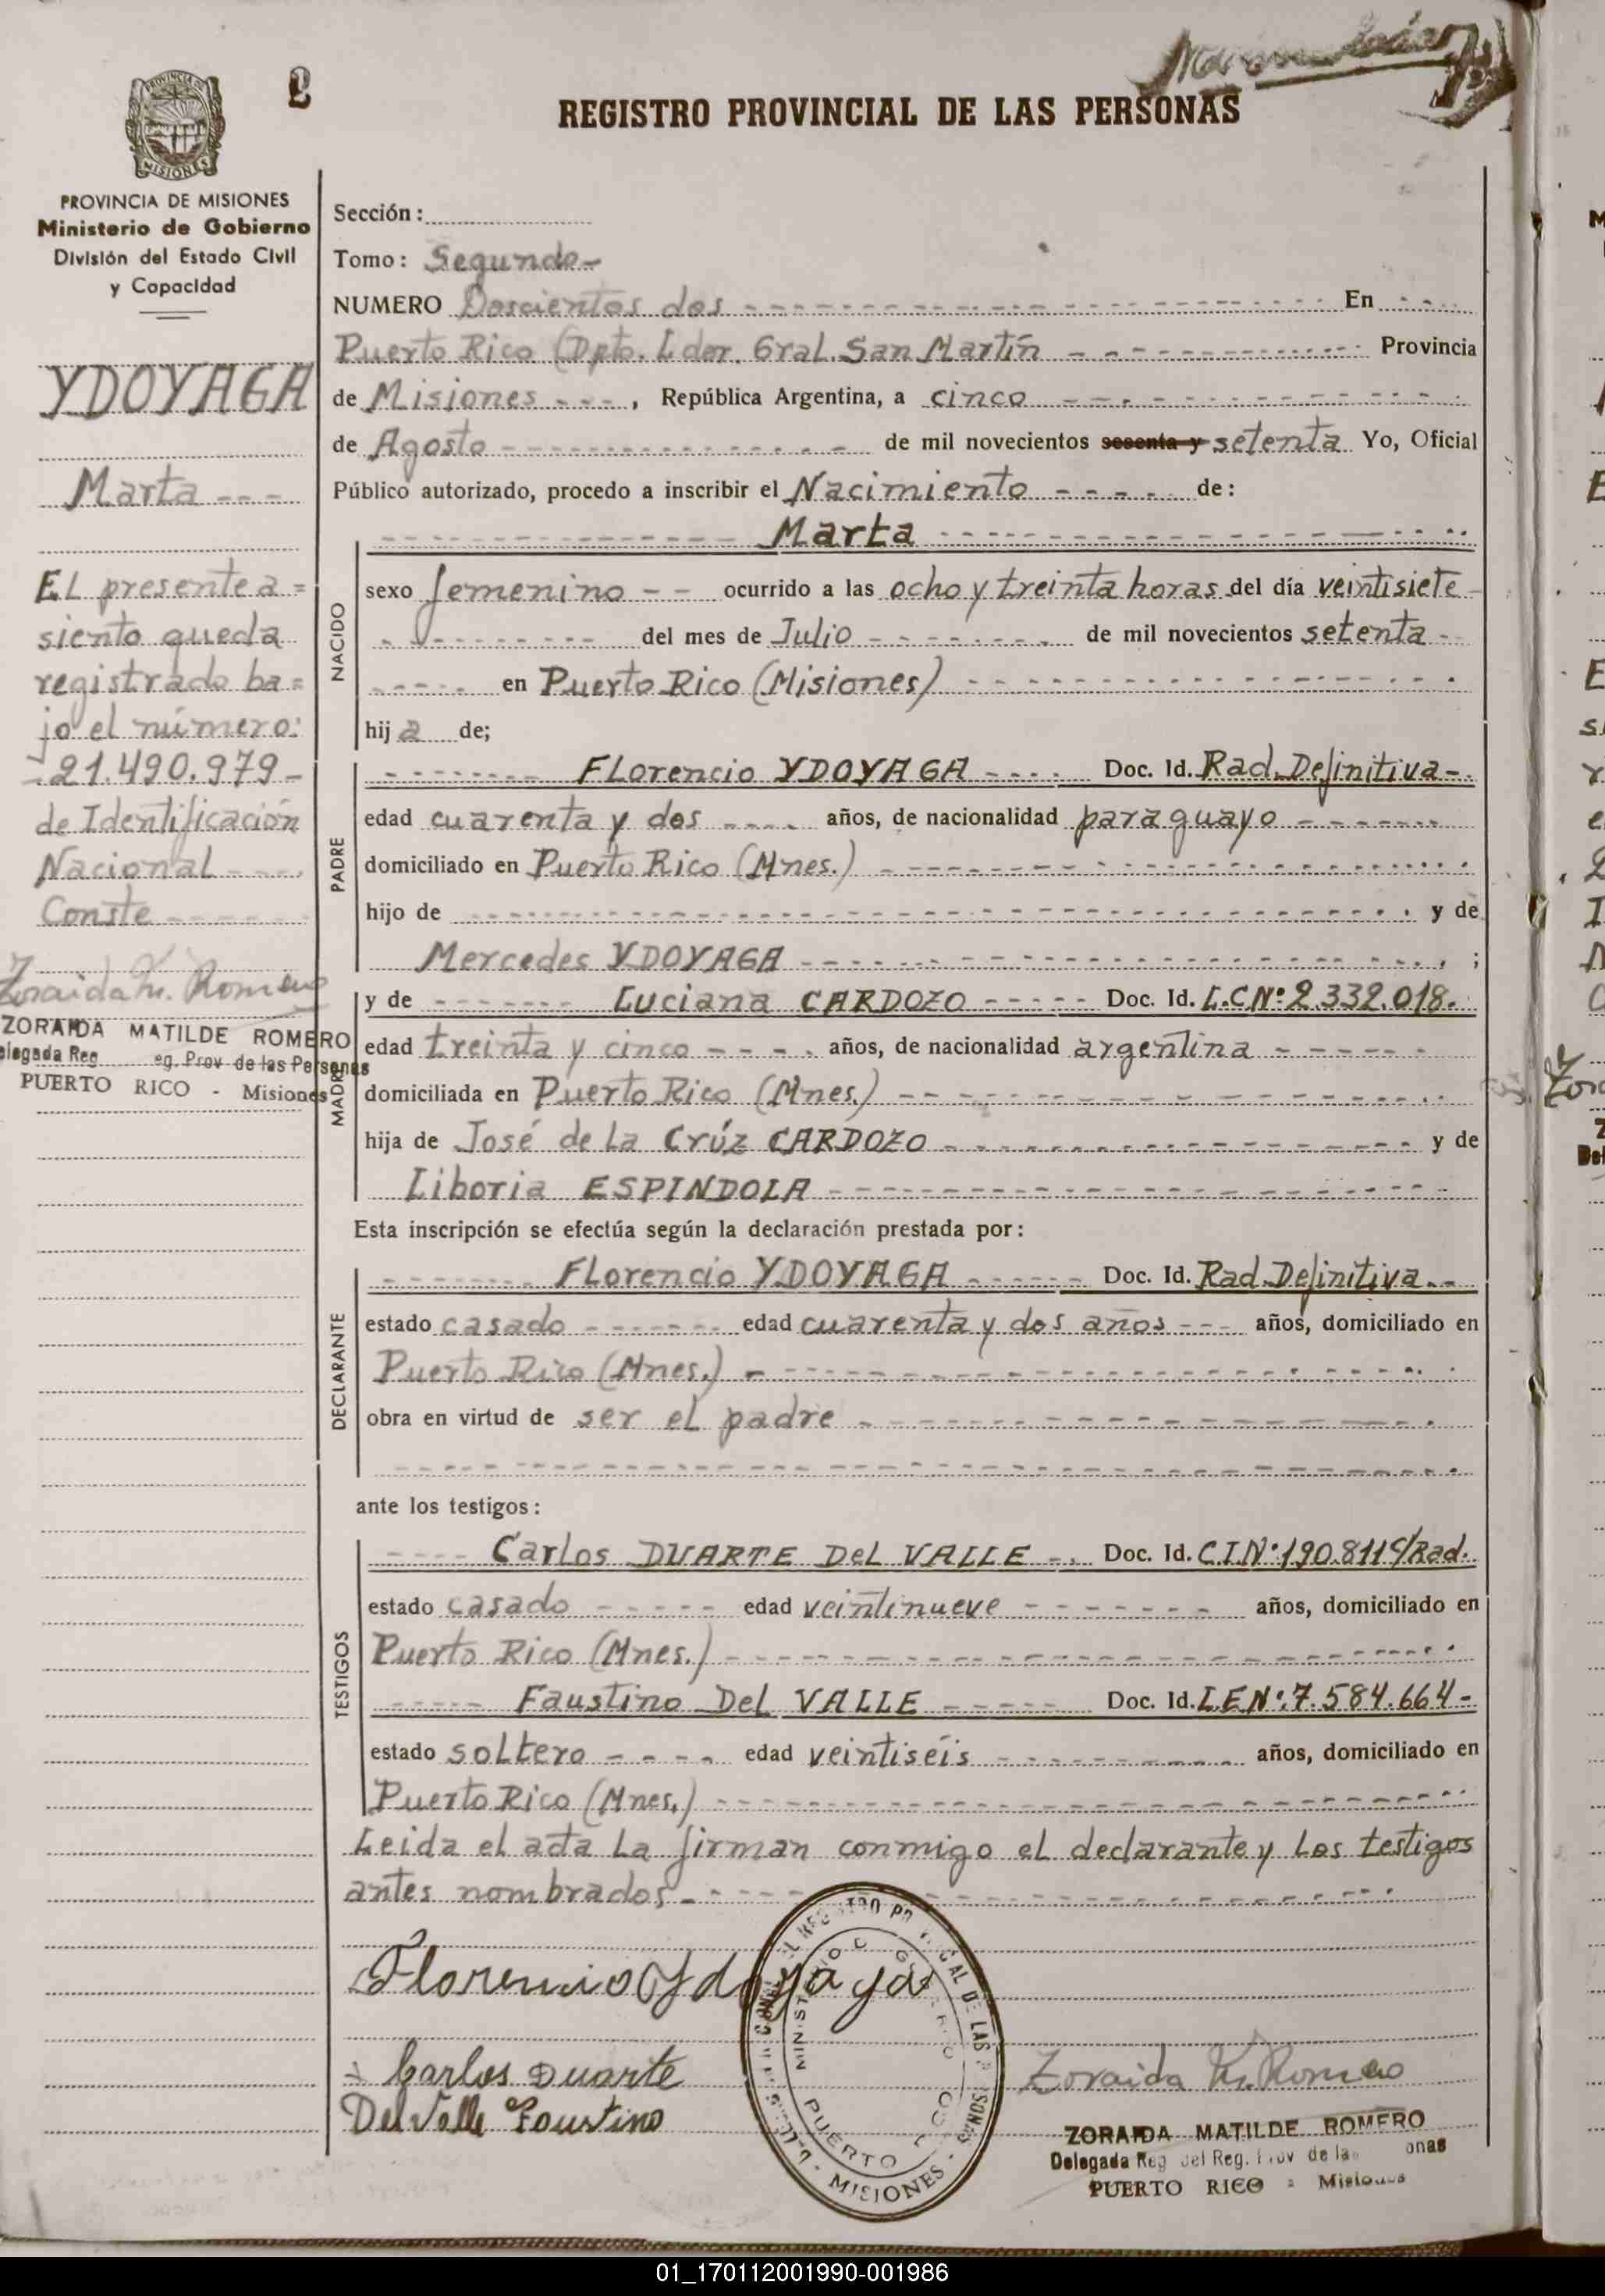 2
REGISTRO PROVINCIAL DE LAS PERSONAS
PROVINCIA DE MISIONES
Ministerio de Gobierno
División del Estado Civil
y Capacidad
YDOYAGA
Marta
EL presente a=
siento queda
registrado ba=
jo el número:
21.490.979
de Identificación
Nacional
Conste
Zoraida M. Romero
ZORAIDA MATILDE ROMERO
elegada Reg eg. Prov de las Personas
PUERTO RICO - Misiones
Sección:
Tomo: Segundo
NUMERO Doscientos dos En
Puerto Rico (Dpto. Ldor. Gral. San Martín Provincia
de Misiones, República Argentina, a cinco
de Agosto de mil novecientos sesenta y setenta Yo, Oficial
Público autorizado, procedo a inscribir el Nacimiento de:
Marta
NACIDO
sexo femenino ocurrido a las ocho y treinta horas del día veintisiete
del mes de Julio de mil novecientos setenta
en Puerto Rico (Misiones)
hija de;
PADRE
FLorencio YDOYAGA Doc. Id. Rad. Definitiva
edad cuarenta y dos años, de nacionalidad paraguayo
domiciliado en Puerto Rico (Mnes.)
hijo de y de
Mercedes YDOYAGA ;
MADRE
y de Luciana CARDOZO Doc. Id. L.C Nº 2.332.018.
edad treinta y cinco años, de nacionalidad argentina
domiciliada en Puerto Rico (Mnes.)
hija de José de La Crúz CARDOZO y de
Liboria ESPINDOLA
Esta inscripción se efectúa según la declaración prestada por:
DECLARANTE
FLorencio YDOYAGA Doc. Id. Rad. Definitiva
estado casado edad cuarenta y dos años años, domiciliado en
Puerto Rico (Mnes.)
obra en virtud de ser el padre
ante los testigos:
TESTIGOS
Carlos DUARTE DEL VALLE Doc. Id. C.I.Nº 190.811 /Rad.
estado casado edad veintinueve años, domiciliado en
Puerto Rico (Mnes.)
Faustino DEL VALLE Doc. Id. L.E Nº: 7.584.664
estado soltero edad veintiséis años, domiciliado en
Puerto Rico (Mnes.)
Leida el acta La firman conmigo el declarante y Los testigos
antes nombrados
Florencio Ydoyaga
Carlos Duarte
Del Valle Faustino
PUERTO
MISIONES
Zoraida M. Romero
ZORAIDA MATILDE ROMERO
Delegada Reg del Reg. Prov de las onas
PUERTO RICO - Misiones
01_170112001990-001986